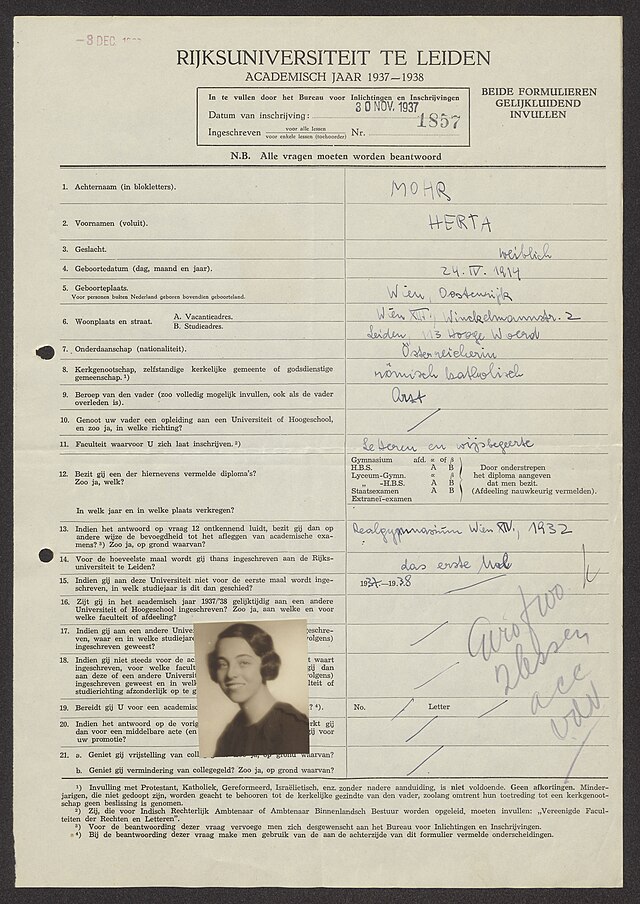 -3 DEC.
RIJKSUNIVERSITEIT TE LEIDEN
ACADEMISCH JAAR 1937—1938
BEIDE FORMULIEREN
GELIJKLUIDEND
INVULLEN
In te vullen door het Bureau voor Inlichtingen en Inschrijvingen
Datum van inschrijving: 30 NOV. 1937
Ingeschreven voor alle lessen Nr. 1857
voor enkele lessen (toehoorder)
N.B. Alle vragen moeten worden beantwoord
1. Achternaam (in blokletters). MOHR
2. Voornamen (voluit). HERTA
3. Geslacht. weiblich
4. Geboortedatum (dag, maand en jaar). 24. IV. 1914
5. Geboorteplaats. Wien, Oostenrijk
Voor personen buiten Nederland geboren bovendien geboorteland.
6. Woonplaats en straat. A. Vacantieadres. Wien XII., Winckelmannstr. 2
B. Studieadres. Leiden, 113 Hooge Woerd
7. Onderdaanschap (nationaliteit). Österreicherin
8. Kerkgenootschap, zelfstandige kerkelijke gemeente of godsdienstige
gemeenschap. ¹) römisch katholisch
9. Beroep van den vader (zoo volledig mogelijk invullen, ook als de vader
overleden is). Arzt
10. Genoot uw vader een opleiding aan een Universiteit of Hoogeschool,
en zoo ja, in welke richting?
11. Faculteit waarvoor U zich laat inschrijven. ²) Letteren en wijsbegeerte
12. Bezit gij een der hiernevens vermelde diploma's?
Zoo ja, welk?
In welk jaar en in welke plaats verkregen?
Gymnasium afd. α of β
H.B.S. A B
Lyceum-Gymn. α β
„ -H.B.S. A B
Staatsexamen A B
Extraneï-examen
Door onderstrepen
het diploma aangeven
dat men bezit.
(Afdeeling nauwkeurig vermelden).
13. Indien het antwoord op vraag 12 ontkennend luidt, bezit gij dan op
andere wijze de bevoegdheid tot het afleggen van academische exa-
mens? ³) Zoo ja, op grond waarvan? Realgymnasium Wien XIV., 1932
14. Voor de hoeveelste maal wordt gij thans ingeschreven aan de Rijks-
universiteit te Leiden? das erste Mal
15. Indien gij aan deze Universiteit niet voor de eerste maal wordt inge-
schreven, in welk studiejaar is dit dan geschied? 1937—1938
16. Zijt gij in het academisch jaar 1937/'38 gelijktijdig aan een andere
Universiteit of Hoogeschool ingeschreven? Zoo ja, aan welke en voor
welke faculteit of afdeeling?
17. Indien gij aan een andere Univer geschre-
ven, waar en in welke studiejare volgens)
ingeschreven geweest?
18. Indien gij niet steeds voor de ac waart
ingeschreven, voor welke facult gij dan
aan deze of een andere Universi volgens)
ingeschreven geweest en in welk lteit of
studierichting afzonderlijk op te g
19. Bereidt gij U voor een academisc ? ⁴). No. Letter
20. Indien het antwoord op de vorig rkt gij
dan voor een middelbare acte (en gij voor
uw promotie?
21. a. Geniet gij vrijstelling van coll Zoo ja, op grond waarvan?
b. Geniet gij vermindering van collegegeld? Zoo ja, op grond waarvan?
2 lessen
acc
¹) Invulling met Protestant, Katholiek, Gereformeerd, Israëlietisch, enz. zonder nadere aanduiding, is niet voldoende. Geen afkortingen. Minder-
jarigen, die niet gedoopt zijn, worden geacht te behooren tot de kerkelijke gezindte van den vader, zoolang omtrent hun toetreding tot een kerkgenoot-
schap geen beslissing is genomen.
²) Zij, die voor Indisch Rechterlijk Ambtenaar of Ambtenaar Binnenlandsch Bestuur worden opgeleid, moeten invullen: „Vereenigde Facul-
teiten der Rechten en Letteren".
³) Voor de beantwoording dezer vraag vervoege men zich desgewenscht aan het Bureau voor Inlichtingen en Inschrijvingen.
⁴) Bij de beantwoording dezer vraag make men gebruik van de aan de achterzijde van dit formulier vermelde onderscheidingen.